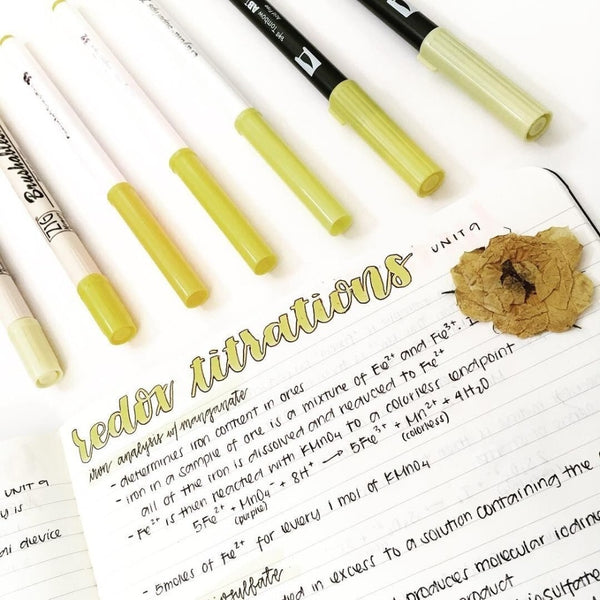 Tombow ABT
ZIG Brushables
UNIT 9
redox titrations
iron analysis w/ manganate
- determines iron content in ores
- iron in a sample of ore is a mixture of Fe²⁺ and Fe³⁺.
all of the iron is dissolved and reduced to Fe²⁺
- Fe²⁺ is then reacted with KMnO₄ to a colorless endpoint
5Fe²⁺ + MnO₄⁻ + 8H⁺ → 5Fe³⁺ + Mn²⁺ + 4H₂O
(purple) (colorless)
- 5moles of Fe²⁺ for every 1 mol of KMnO₄
in excess to a solution containing the
produces molecular iodine
product
UNIT 9
y is
device